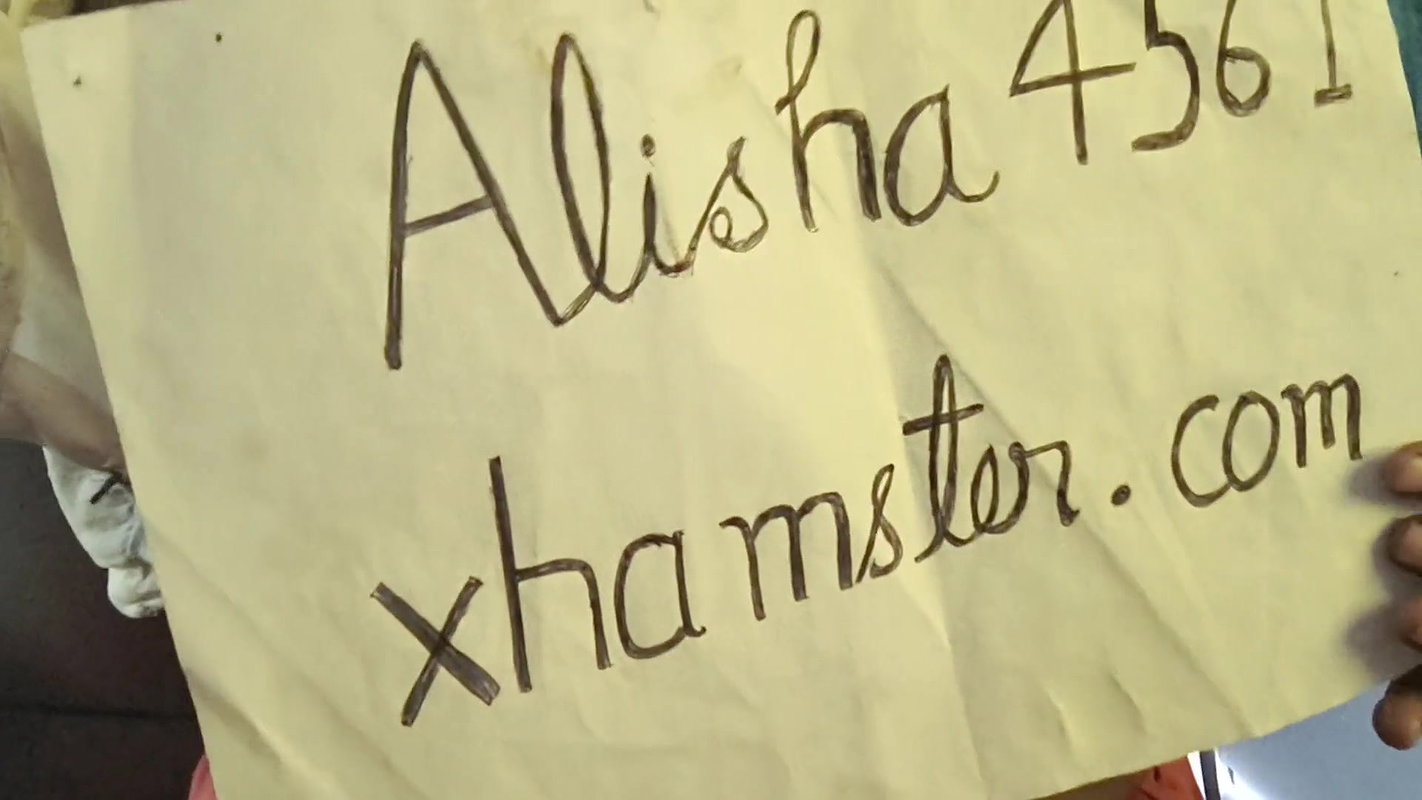 Alisha 4561
xhamster.com